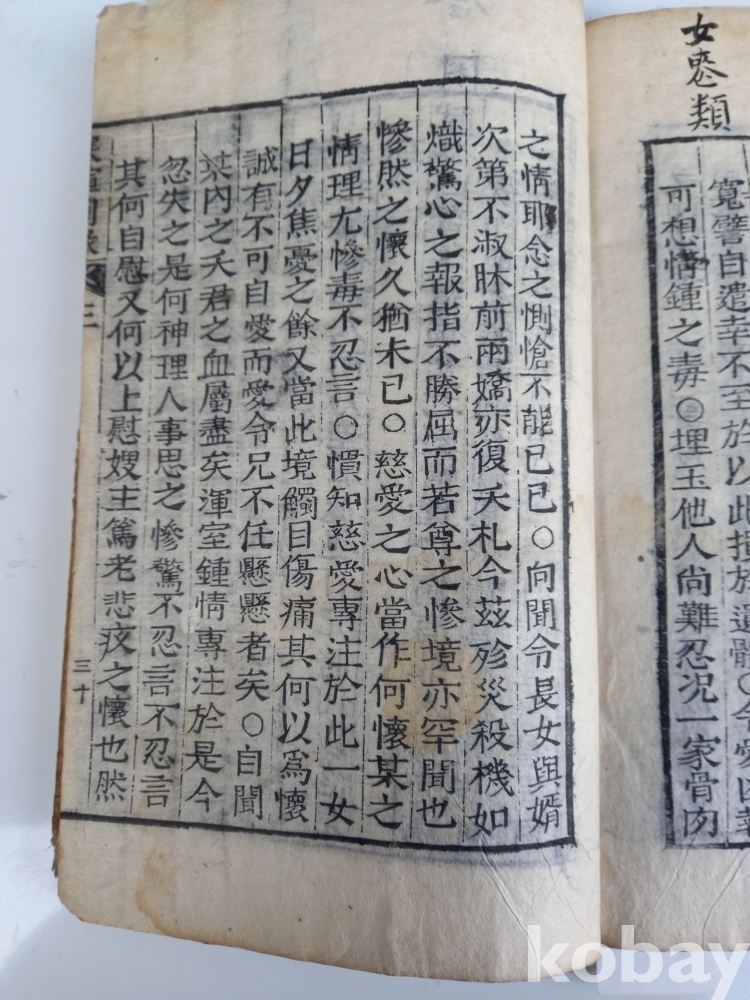 女類
寬譬自遣幸不至於以此損於遺體○令愛凶
可想情鍾之毒○埋玉他人尚難忍况一家骨肉
之情耶念之惻愴不能已已○向聞令長女與婿
次第不淑眛前兩嬌亦復夭札今茲殄災殺機如
熾驚心之報指不勝屈而若尊之慘境亦罕聞也
慘然之懷久猶未已○慈愛之心當作何懷某之
情理尤慘毒不忍言○慣知慈愛專注於此一女
日夕焦憂之餘又當此境觸目傷痛其何以爲懷
誠有不可自愛而愛令兄不任懸懸者矣○自聞
某內之夭君之血屬盡矣渾室鍾情專注於是今
忽失之是何神理人事思之慘驚不忍言不忍言
其何自慰又何以上慰嫂主篤老悲疚之懷也然
三
三十
kobay